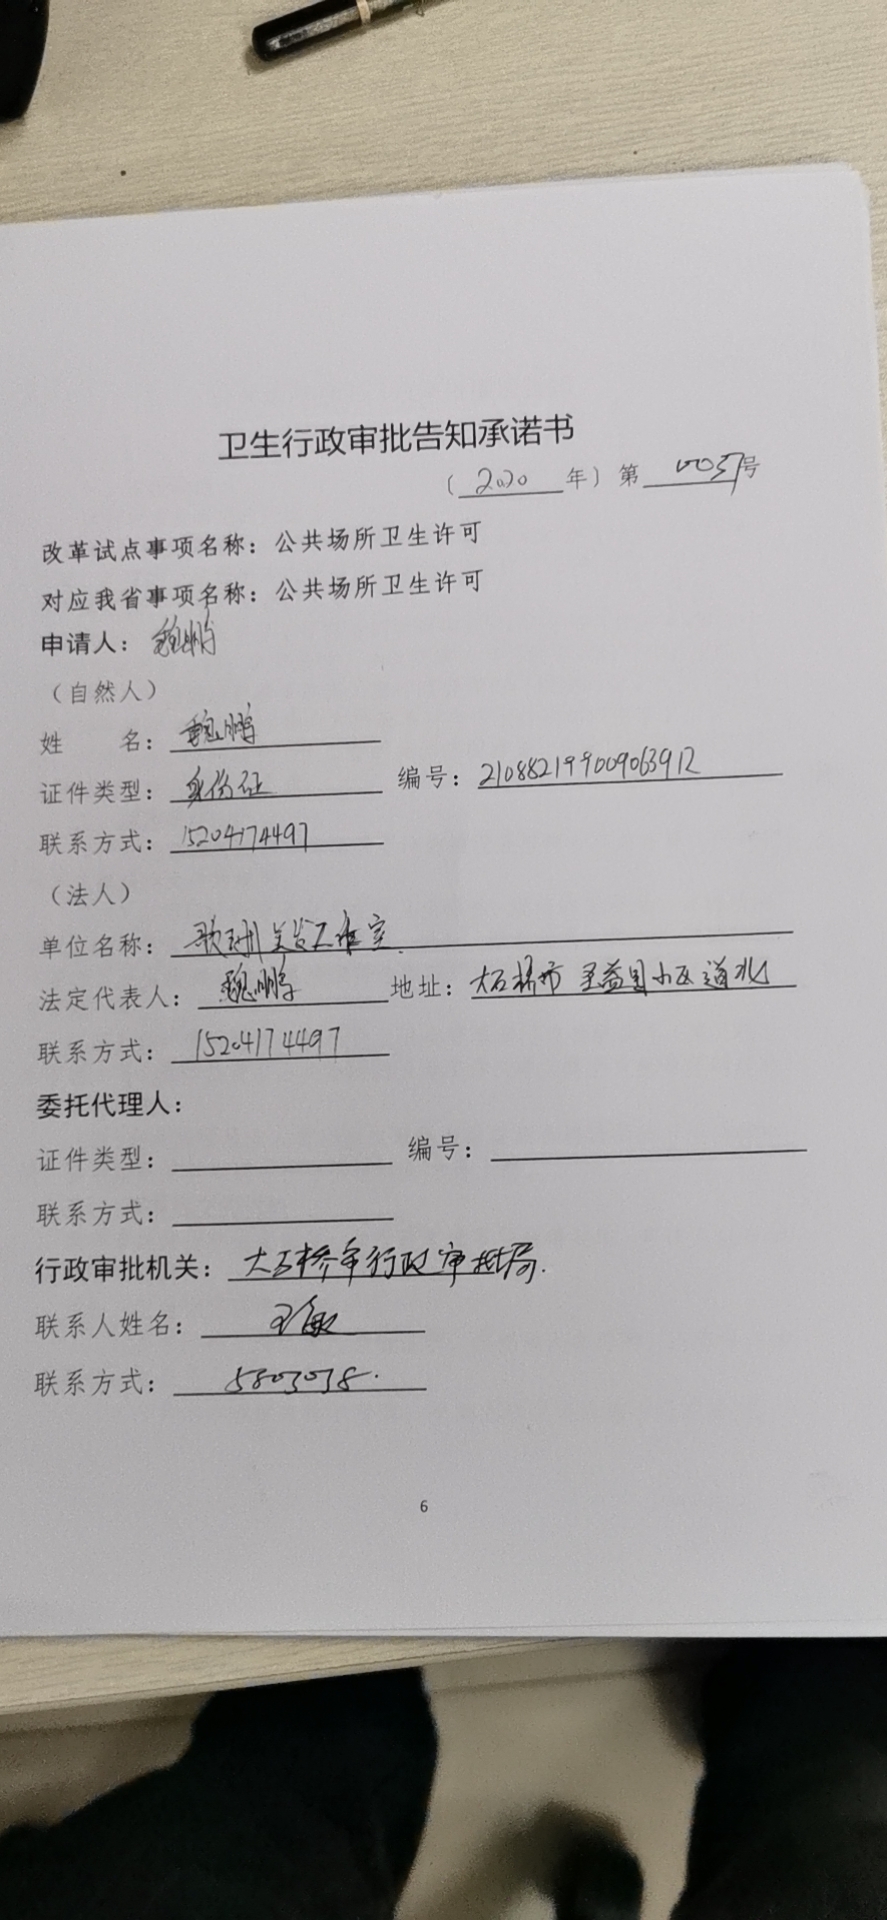 卫生行政审批告知承诺书
（2020年）第 0057号
改革试点事项名称：公共场所卫生许可
对应我省事项名称：公共场所卫生许可
申请人：魏鹏
（自然人）
姓 名：魏鹏
证件类型：身份证 编号：210882199009063912
联系方式：15204174497
（法人）
单位名称：歌洲美发工作室
法定代表人：魏鹏 地址：大石桥市 益园小区道北
联系方式：15204174497
委托代理人：
证件类型： 编号：
联系方式：
行政审批机关：大石桥市行政审批局.
联系人姓名：王敏
联系方式：5803038.
6